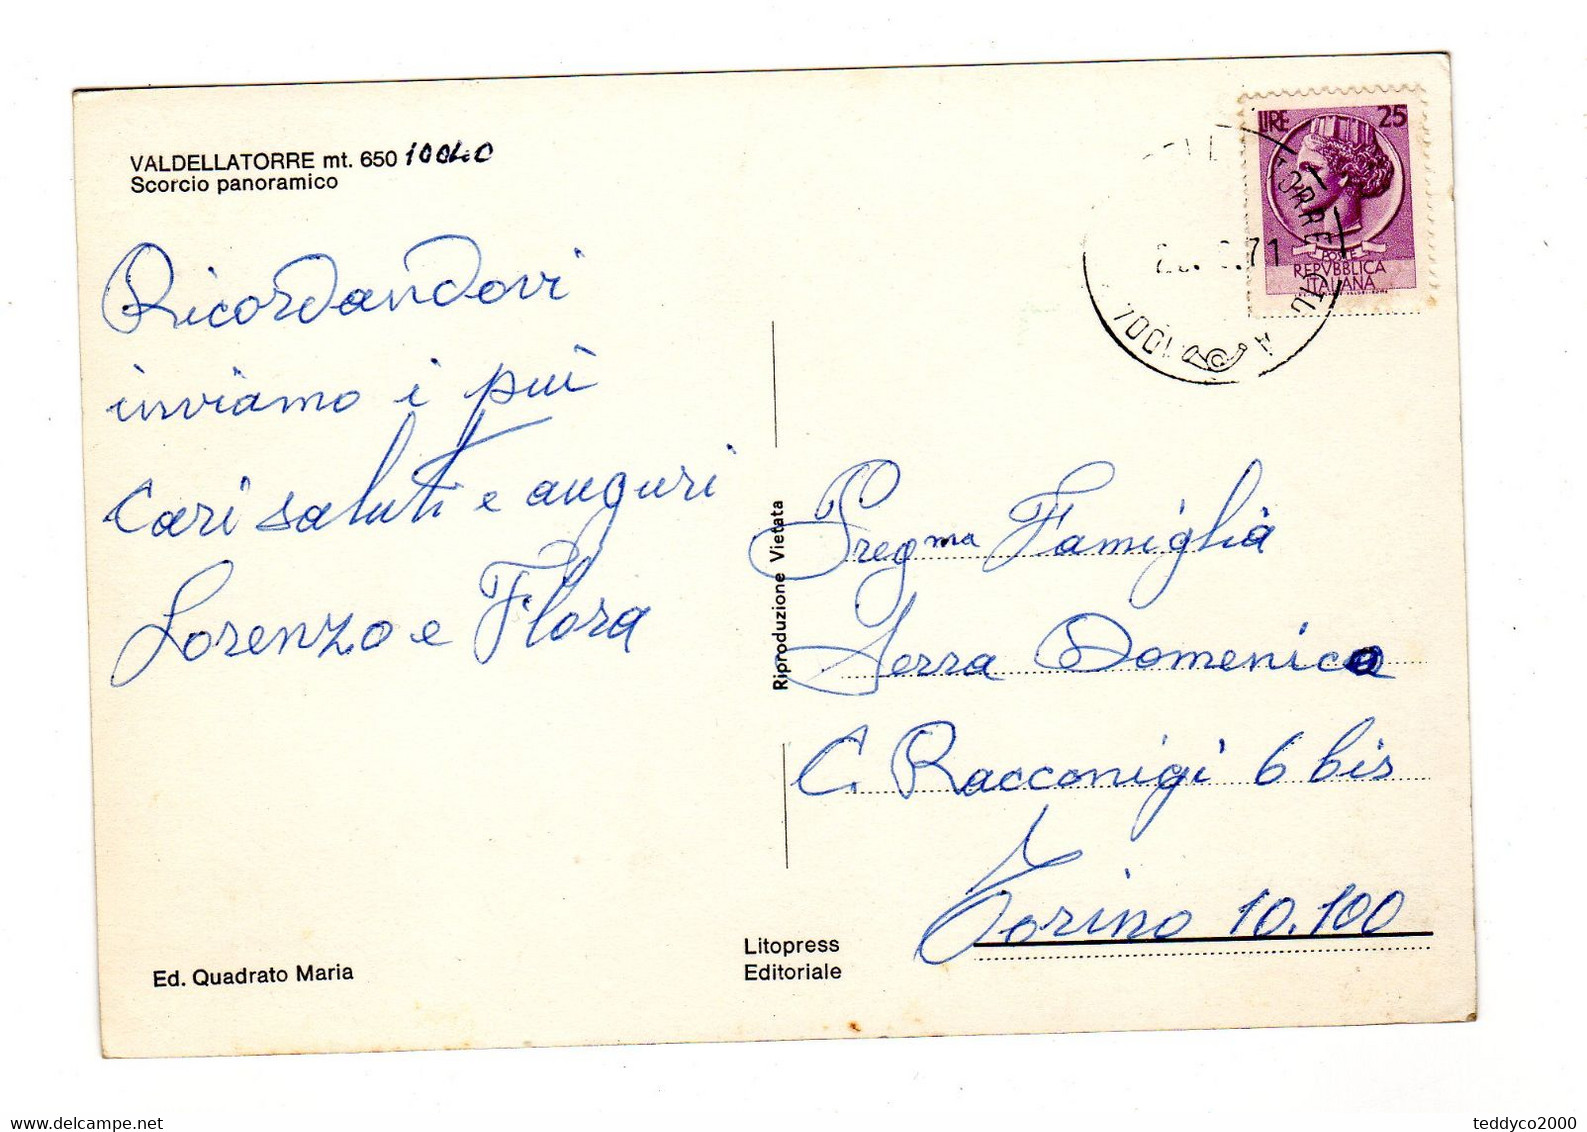 VALDELLATORRE mt. 650 10040
Scorcio panoramico
Ricordandovi
inviamo i più
cari saluti e auguri
Lorenzo e Flora
Ed. Quadrato Maria
Riproduzione Vietata
Litopress
Editoriale
LIRE 25
POSTE
REPVBBLICA
ITALIANA
TORRE
71
10040
Preg ma Famiglia
Serra Domenico
C. Racconigi 6 bis
Torino 10.100
teddyco2000